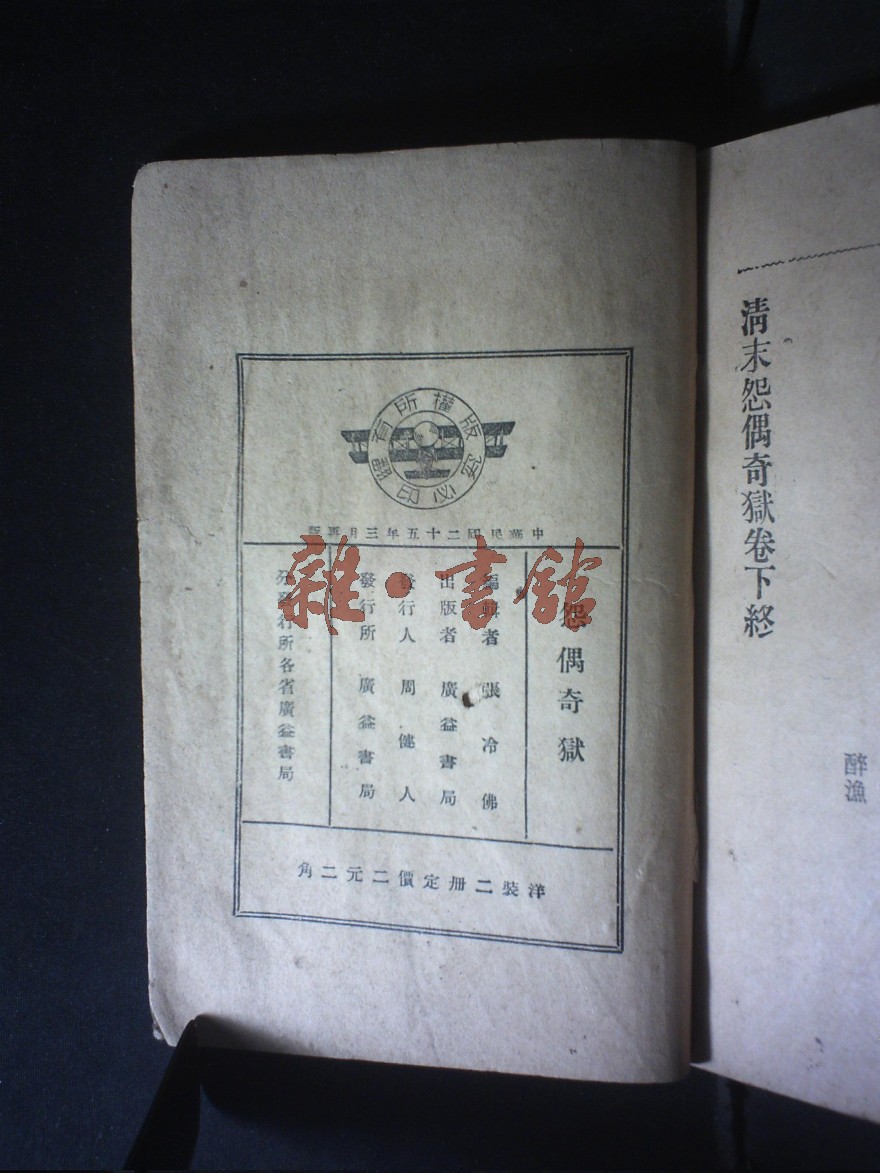 清末怨偶奇獄卷下終
醉漁
版權所有
翻印必究
中華民國二十五年三月再版
怨偶奇獄
編輯者 張冷佛
出版者 廣益書局
發行人 周健人
發行所 廣益書局
分發行所各省廣益書局
洋裝二册定價二元二角
雜·書館